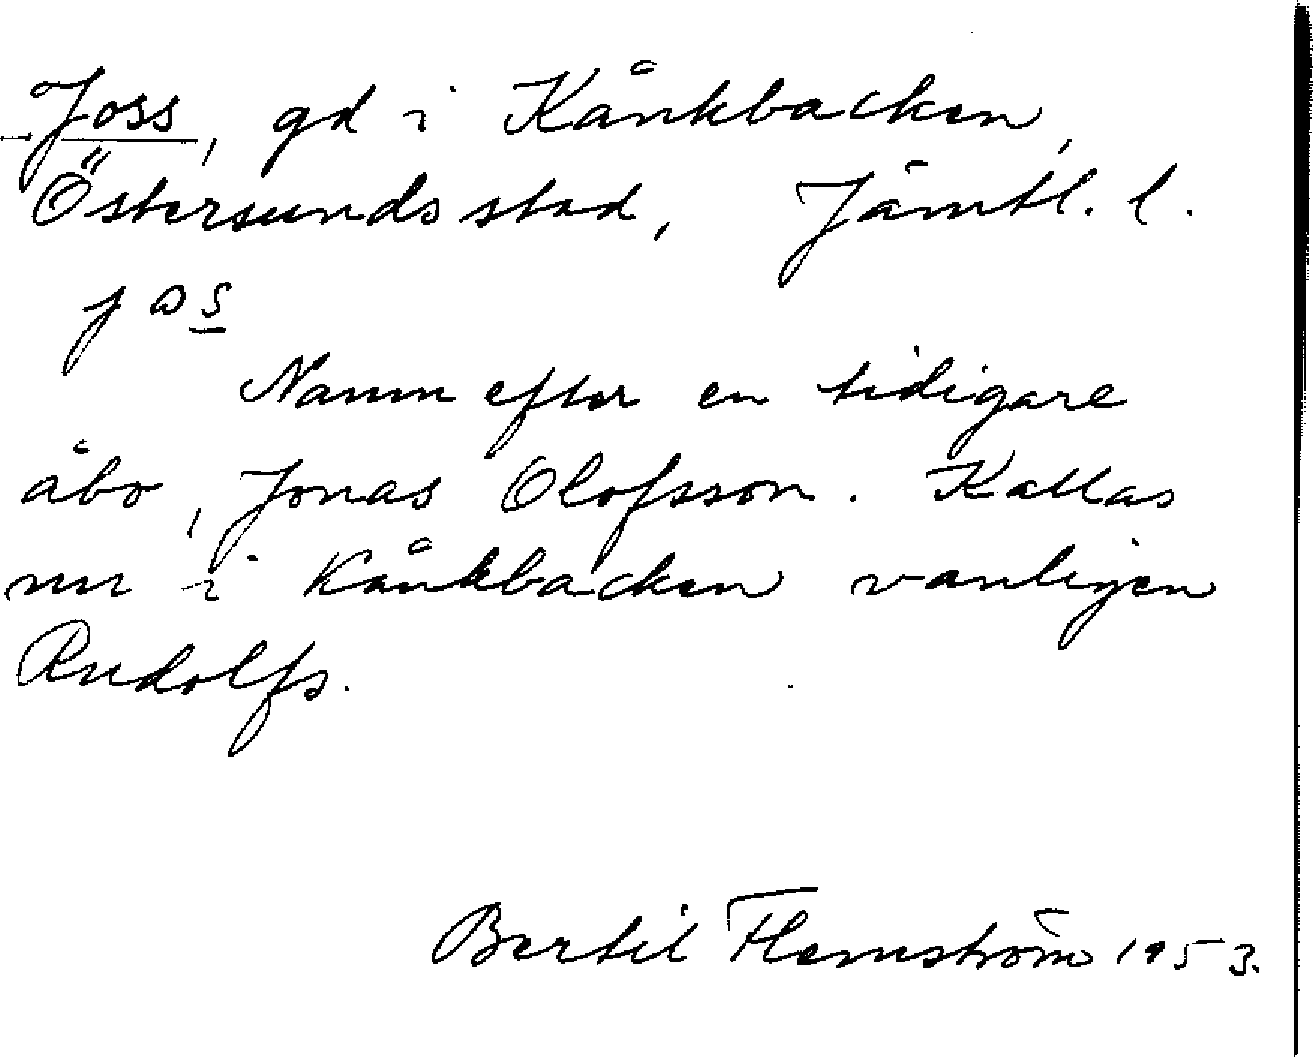 Joss, gd i Kånkbacken,
Östersunds stad, Jämtl. l.
jos
Namn efter en tidigare
åbo, Jonas Olofsson. Kallas
nu i Kånkbacken vanligen
Rudolfs.
Bertil Flemström 1953.